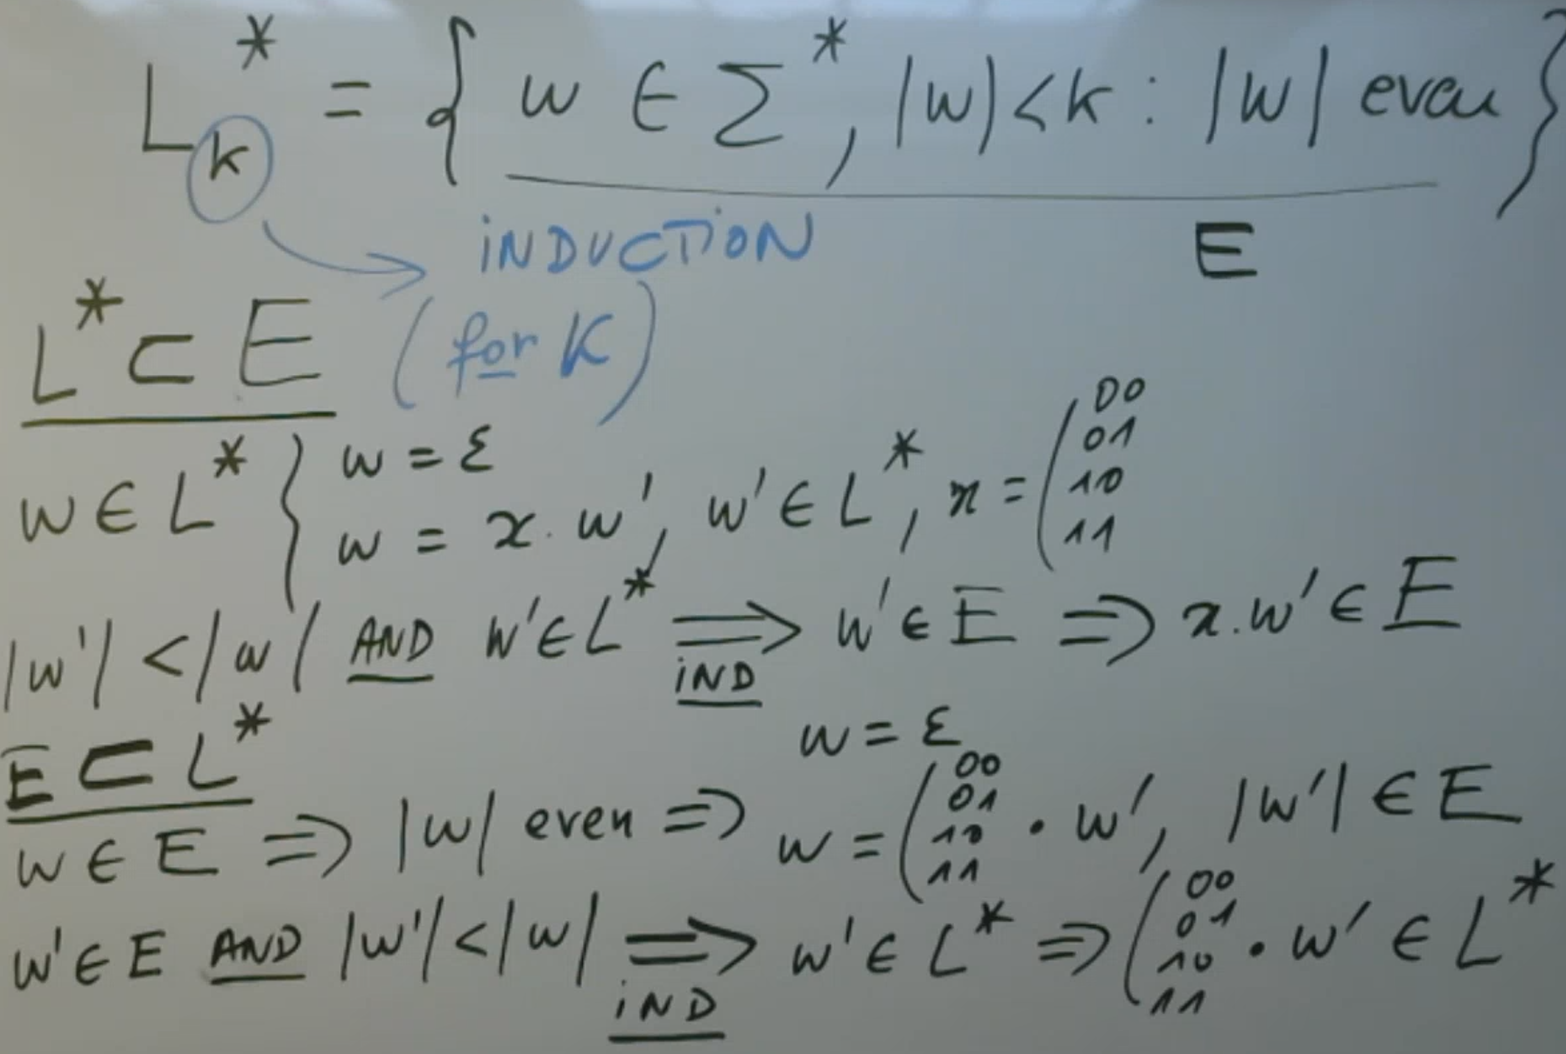 L_k^* = { w ∈ Σ^*, |w| < k : |w| even }
E
INDUCTION
(for K)
L^* ⊂ E
w ∈ L^* } w = ε
w = x . w', w' ∈ L^*, x = ( 00 01 10 11
|w'| < |w| AND w' ∈ L^* ⟹ IND w' ∈ E ⟹ x.w' ∈ E
E ⊂ L^*
w = ε
w ∈ E ⟹ |w| even ⟹ w = ( 00 01 10 11 • w', |w'| ∈ E
w' ∈ E AND |w'| < |w| ⟹ IND w' ∈ L^* ⟹ ( 00 01 10 11 • w' ∈ L^*